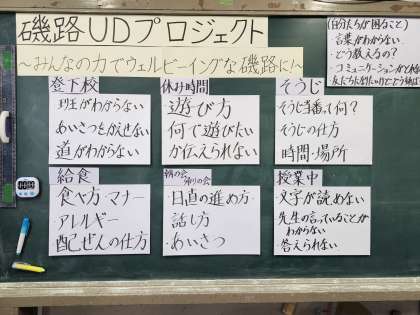 磯路UDプロジェクト
~みんなの力でウェルビーイングな磯路に!~
(自分たちが困ること)
・言葉がわからない
・どう教えるの?
・コミュニケーションがとれない
登下校
・班がわからない
・あいさつをかえせない
・道がわからない
休み時間
・遊び方
・何で遊びたい
か伝えられない
そうじ
・そうじ当番って何?
・そうじの仕方
・時間・場所
給食
・食べ方・マナー
・アレルギー
・配ぜんの仕方
朝の会
帰りの会
・日直の進め方
・話し方
・あいさつ
授業中
・文字が読めない
・先生の言っていることが
わからない
・答えられない